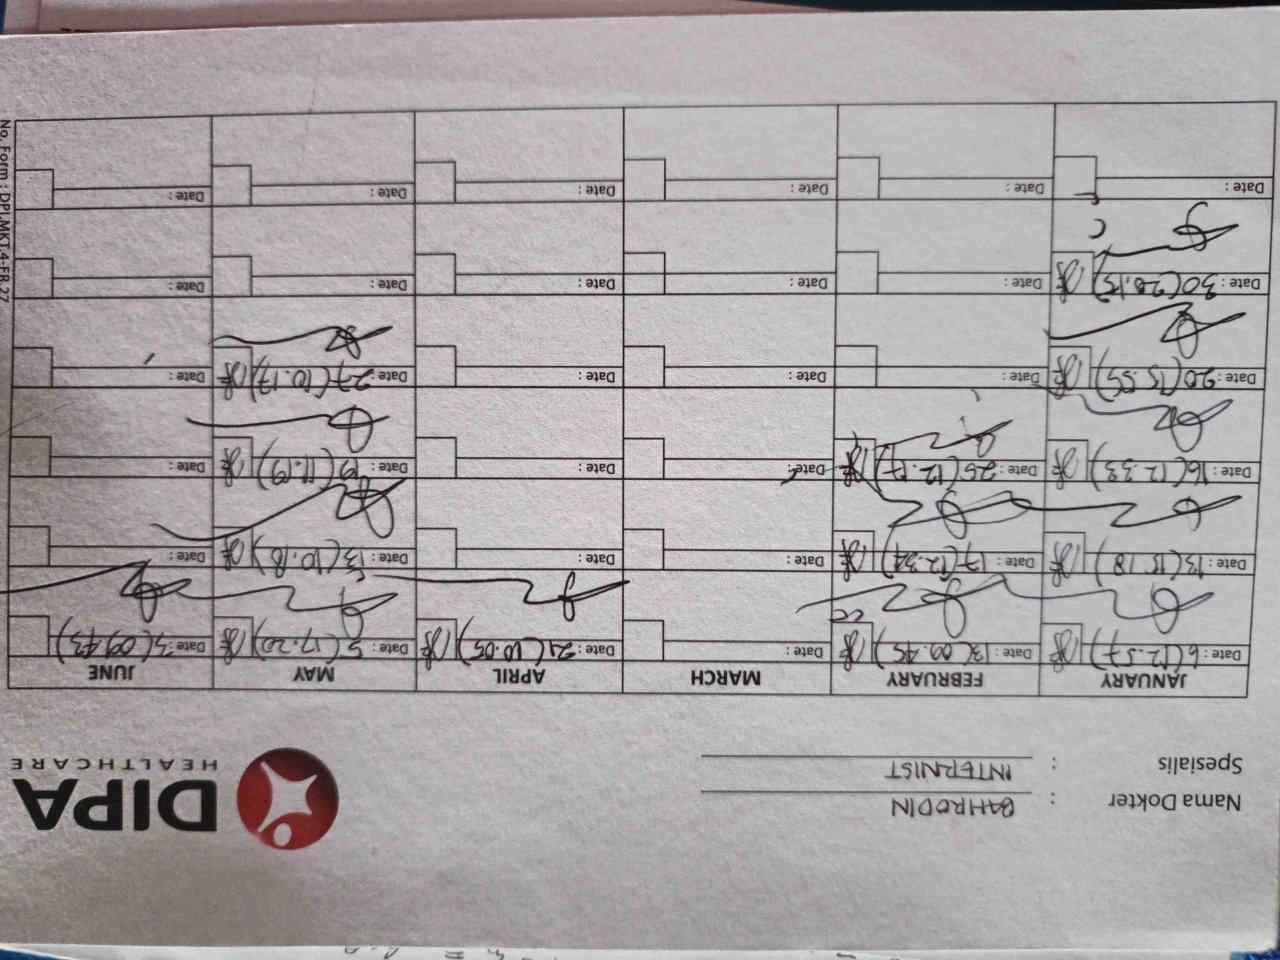 Nama Dokter : BAHRODIN
Spesialis : INTERNIST
DIPA
HEALTHCARE
JANUARY FEBRUARY MARCH APRIL MAY JUNE
Date: 6 (12.57) Date: 13 (09.45) Date: Date: 21 (10.05) Date: 5 (17.20) Date: 3 (09.43)
Date: 13 (13.18) Date: 17 (12.34) Date: Date: Date: 13 (10.18) Date:
Date: 16 (12.33) Date: 25 (12.17) Date: Date: Date: 19 (11.19) Date:
Date: 20 (15.55) Date: Date: Date: Date: 27 (10.17) Date:
Date: 30 (20.15) Date: Date: Date: Date: Date:
Date: Date: Date: Date: Date: Date:
No. Form : DPI.MKT.4-FR.27